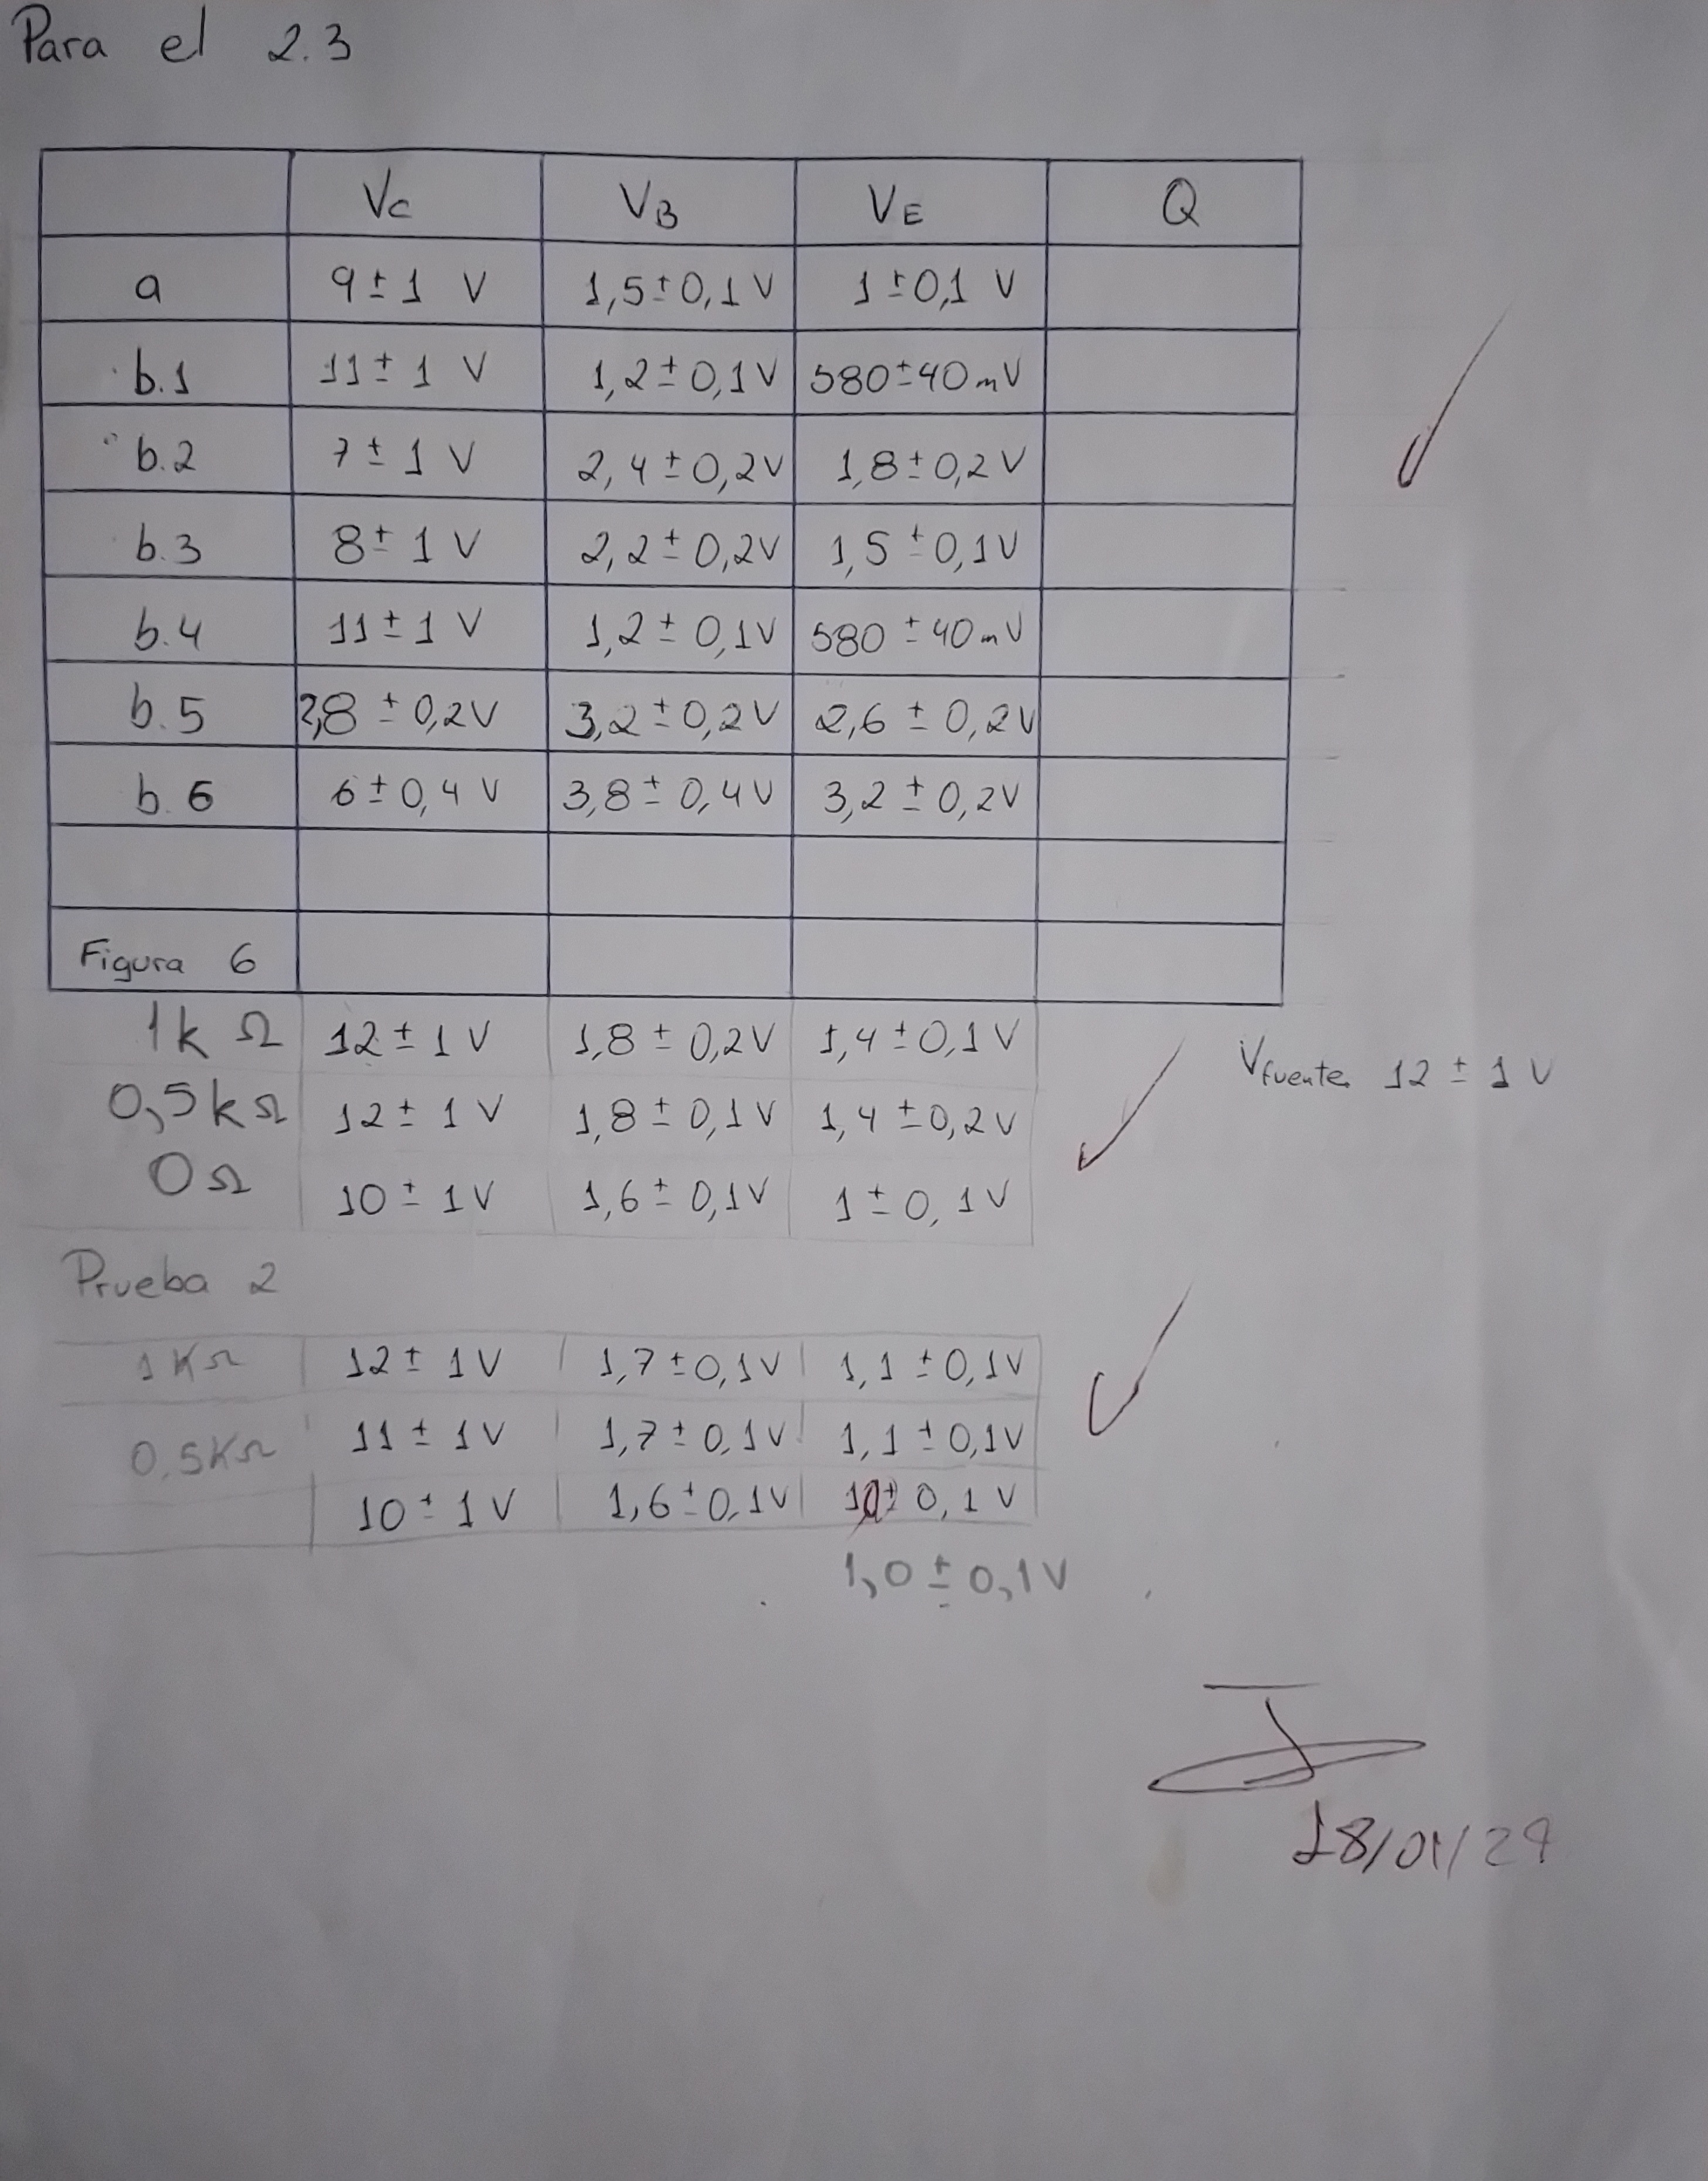 Para el 2.3
Vc VB VE Q
a 9 ± 1 V 1,5 ± 0,1 V 1 ± 0,1 V
b.1 11 ± 1 V 1,2 ± 0,1 V 580 ± 40 mV
b.2 7 ± 1 V 2,4 ± 0,2 V 1,8 ± 0,2 V
b.3 8 ± 1 V 2,2 ± 0,2 V 1,5 ± 0,1 V
b.4 11 ± 1 V 1,2 ± 0,1 V 580 ± 40 mV
b.5 2,8 ± 0,2 V 3,2 ± 0,2 V 2,6 ± 0,2 V
b.6 6 ± 0,4 V 3,8 ± 0,4 V 3,2 ± 0,2 V
Figura 6
1k Ω 12 ± 1 V 1,8 ± 0,2 V 1,4 ± 0,1 V
Vfuente 12 ± 1 V
0,5k Ω 12 ± 1 V 1,8 ± 0,1 V 1,4 ± 0,2 V
0 Ω 10 ± 1 V 1,6 ± 0,1 V 1 ± 0,1 V
Prueba 2
1KΩ 12 ± 1 V 1,7 ± 0,1 V 1,1 ± 0,1 V
0,5KΩ 11 ± 1 V 1,7 ± 0,1 V 1,1 ± 0,1 V
10 ± 1 V 1,6 ± 0,1 V 10 ± 0,1 V
1,0 ± 0,1 V